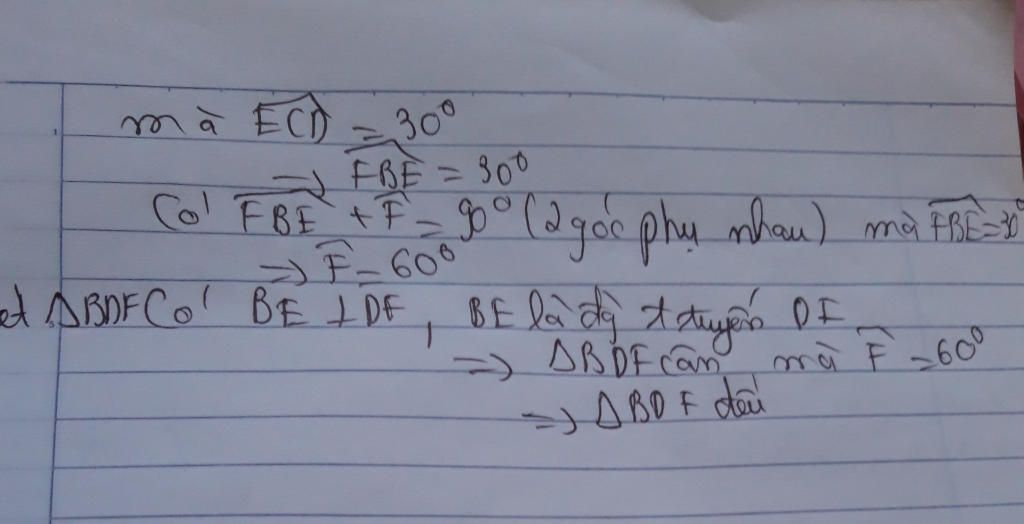 mà ECD = 30⁰
=> FBE = 30⁰
Có FBE + F = 90⁰ (2 góc phụ nhau) mà FBE = 30⁰
=> F = 60⁰
et ΔBDF Có BE ⊥ DF, BE là đg t tuyến DF
=> ΔBDF cân mà F = 60⁰
=> ΔBDF đều